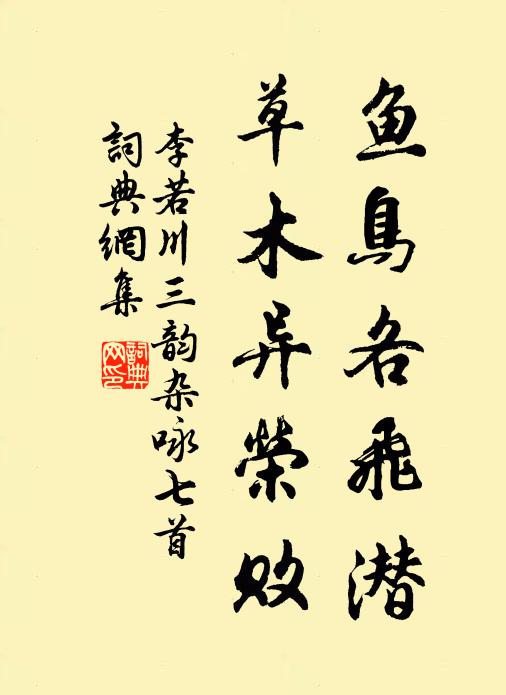 鱼鳥各飛潜
草木异榮敗
李若川三韵杂咏七首
詞典網集
詞典網印